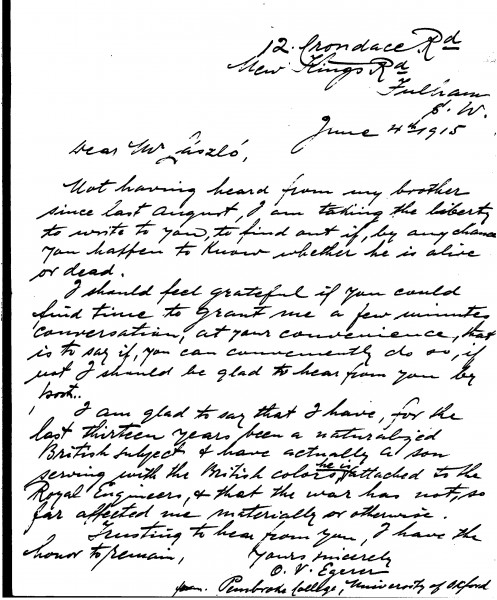 12. Crondace Rd
New Kings Rd
Fulham
S. W.
June 4th 1915
Dear Mr László,
Not having heard from my brother
since last August, I am taking the liberty
to write to you, to find out if, by any chance
you happen to know whether he is alive
or dead.
I should feel grateful if you could
find time to grant me a few minutes
conversation, at your convenience, that
is to say if, you can conveniently do so, if
not I should be glad to hear from you by
post.
I am glad to say that I have, for the
last thirteen years been a naturalized
British subject & have actually a son
serving with the British colors he is attached to the
Royal Engineers, & that the war has not, so
far affected me materially or otherwise.
Trusting to hear from you, I have the
honor to remain,
Yours sincerely
O. V. Egerer
Pembroke College, University of Oxford